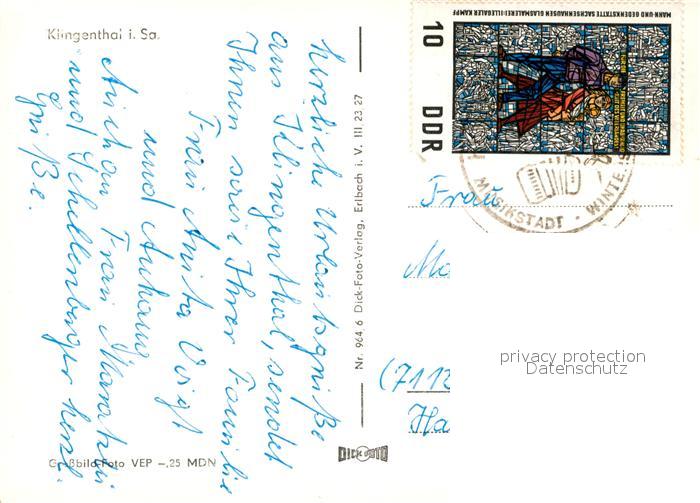 Klingenthal i. Sa.
herzliche Urlaubsgrüße
aus Klingenthal, sendet
Ihnen sowie Ihrer Familie
Frau Anita Voigt
und Anhang
Auch an Frau
und Schellenberger herzl.
Grüße.
Großbild-Foto VEP -,25 MDN
Nr. 964 6 Dick-Foto-Verlag, Erlbach i. V. III 23 27
DICK FOTO
MAHN-UND GEDENKSTÄTTE SACHSENHAUSEN GLASMALEREI: ILLEGALER KAMPF
10
DDR
MUSIKSTADT - WINTE
Frau
Ma
(7112
Ha
privacy protection
Datenschutz